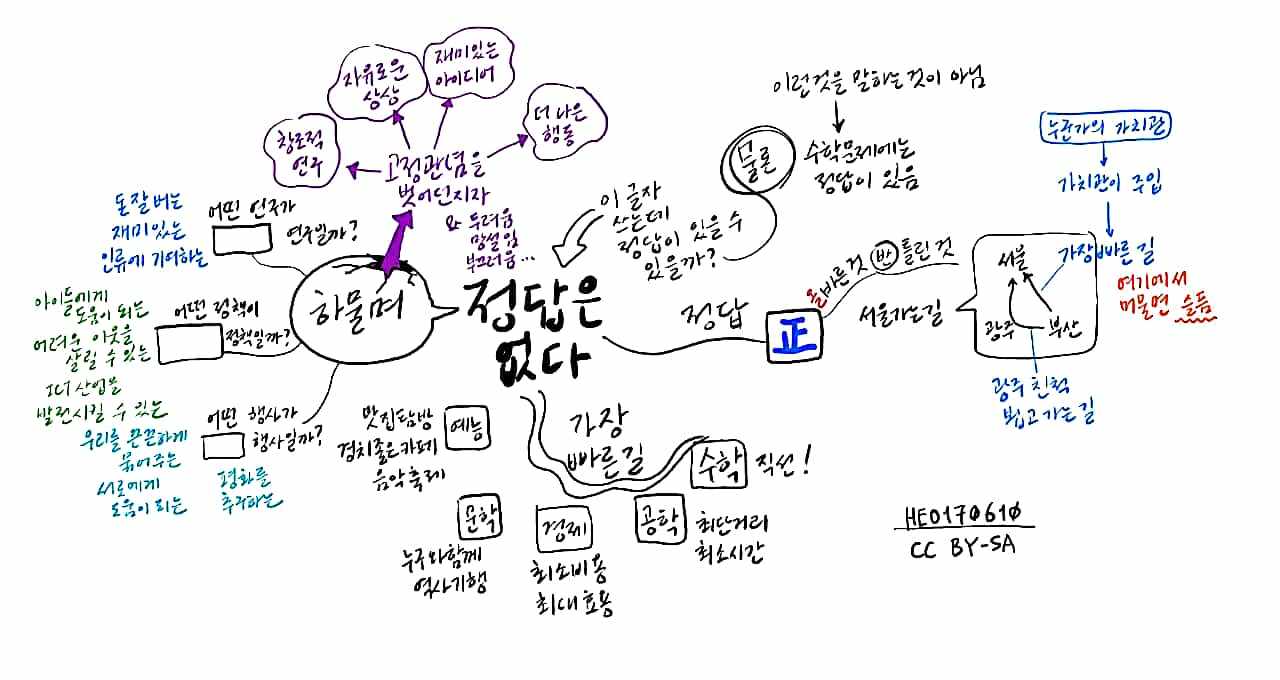 자유로운
상상
재미있는
아이디어
창조적
연구
더 나은
행동
고정관념을
벗어던지자
와 두려움
망설임
부끄러움...
돈 잘 버는
재미있는
인류에 기여하는
어떤 연구가
연구일까?
아이들에게
도움이 되는
어려운 이웃을
살릴 수 있는
ICT 산업을
발전시킬 수 있는
어떤 정책이
정책일까?
우리를 끈끈하게
묶어주는
서로에게
도움이 되는
평화를
추구하는
어떤 행사가
행사일까?
하물며
정답은
없다
이 글자
쓰는데
정답이 있을 수
있을까?
물론
이런것을 말하는것이 아님
수학문제에는
정답이 있음
정답
正
올바른것 반 틀린 것
서울가는길
서울
광주
부산
누군가의 가치관
가치관이 주입
가장 빠른 길
여기에서
머물면 슬픔
광주 친척
뵙고 가는 길
가장
빠른길
수학
직선!
공학
최단거리
최소시간
경제
최소비용
최대효용
문학
누구와함께
역사기행
예능
맛집탐방
경치좋은카페
음악축제
HE0170610
CC BY-SA